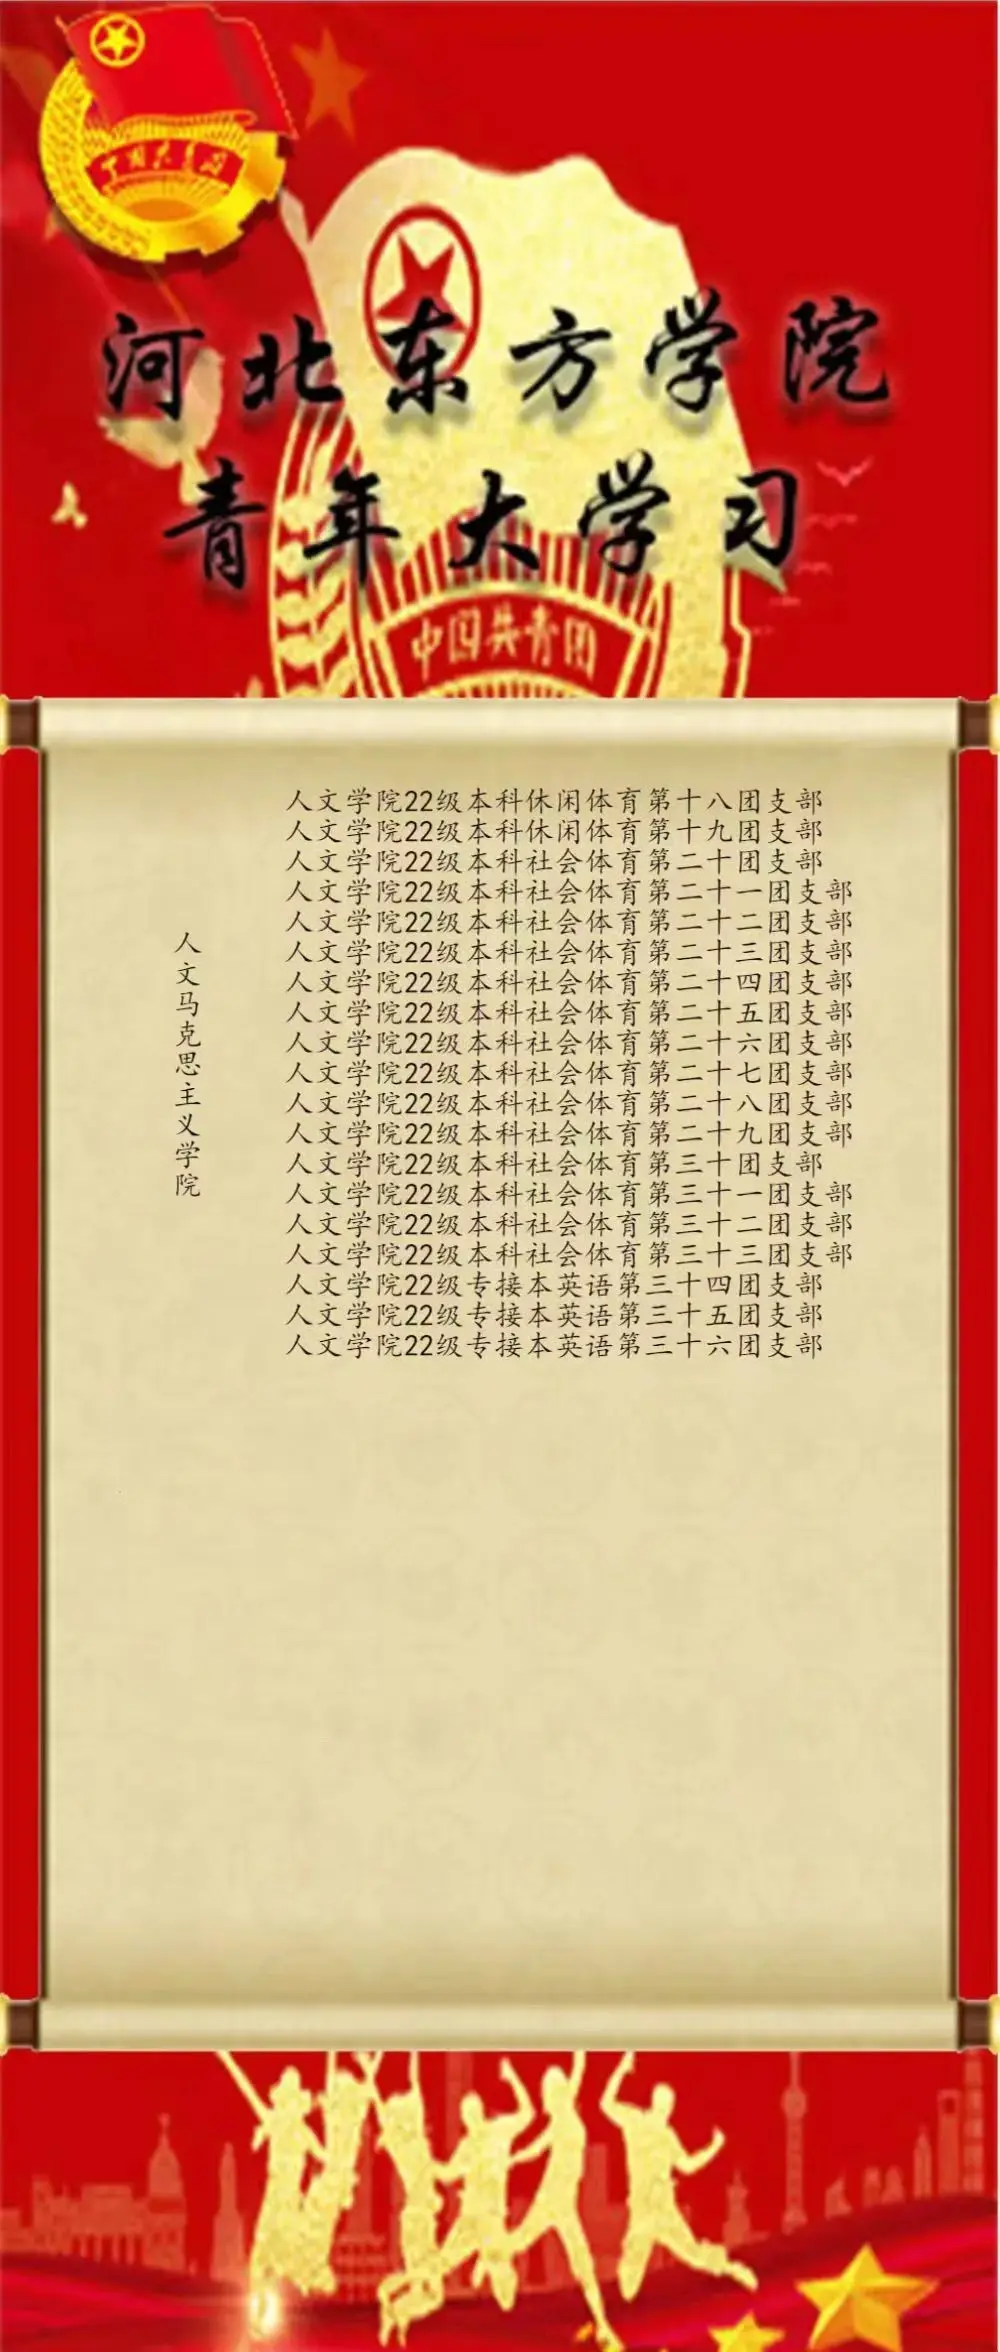 中国共青团
河北东方学院
青年大学习
中国共青团
人文马克思主义学院
人文学院22级本科休闲体育第十八团支部
人文学院22级本科休闲体育第十九团支部
人文学院22级本科社会体育第二十团支部
人文学院22级本科社会体育第二十一团支部
人文学院22级本科社会体育第二十二团支部
人文学院22级本科社会体育第二十三团支部
人文学院22级本科社会体育第二十四团支部
人文学院22级本科社会体育第二十五团支部
人文学院22级本科社会体育第二十六团支部
人文学院22级本科社会体育第二十七团支部
人文学院22级本科社会体育第二十八团支部
人文学院22级本科社会体育第二十九团支部
人文学院22级本科社会体育第三十团支部
人文学院22级本科社会体育第三十一团支部
人文学院22级本科社会体育第三十二团支部
人文学院22级本科社会体育第三十三团支部
人文学院22级专接本英语第三十四团支部
人文学院22级专接本英语第三十五团支部
人文学院22级专接本英语第三十六团支部